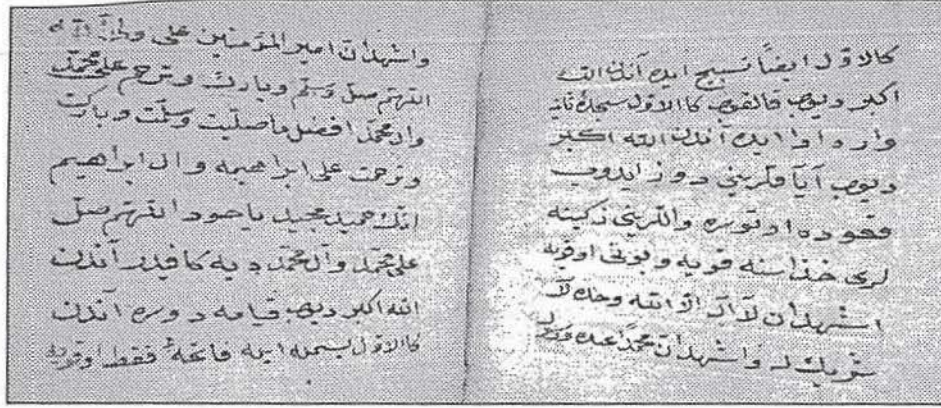 كالاول ايضاً تسبيح ايده آندن الله
اكبر ديوب قالقوب كاالاول سجدهٔ ثانيه
وار دا ايده آندن الله اكبر
ديوب آياقلريني دوز ايدوب
قعوده اوتوره واللريني
لرى حذاسنه قويه وبونى اوقويه
اشهد ان لا اله الا الله وحده لا
شريك له واشهد ان محمد عبده
واشهد ان امير المؤمنين على ولى الله
اللهم صل وسلم وبارك وترحم على محمد
وال محمد افضل ما صليت وسلمت وباركت
وترحمت على ابراهيمه وال ابراهيم
انك حميد مجيد ياخود اللهم صل
على محمد وال محمد ديه كافيدر آندن
الله اكبر ديوب قيامه دوره آندن
كاالاول بسمله ايله فاتحهٔ فقط اوقويه